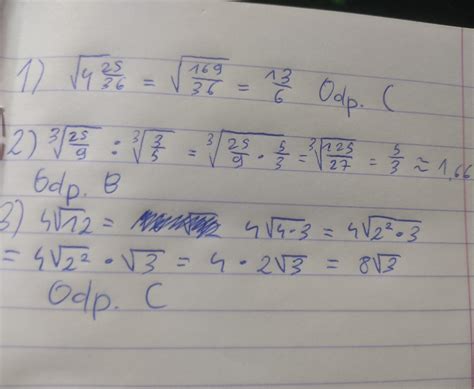 1) √4 25/36 = √169/36 = 13/6 Odp. C
2) ∛25/9 : ∛3/5 = ∛25/9 · 5/3 = ∛125/27 = 5/3 ≈ 1,66
Odp. B
3) 4√12 = 4√4·3 = 4√2²·3
= 4√2² · √3 = 4 · 2√3 = 8√3
Odp. C